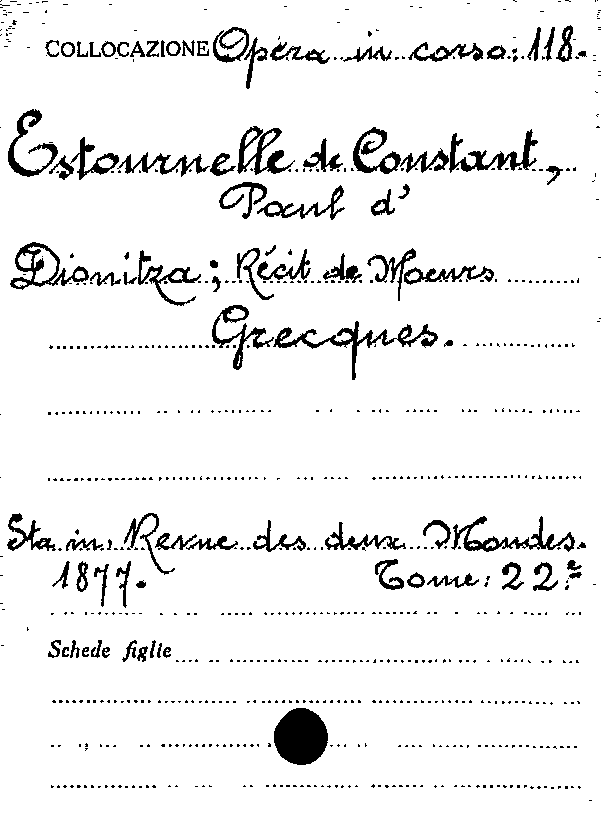 COLLOCAZIONE Opera in corso: 118.
Estournelle de Constant,
Paul d'
Dionitza; Récit de Moeurs
Grecques.
Sta in: Revue des deux Mondes.
1877. Tome: 22e
Schede figlie